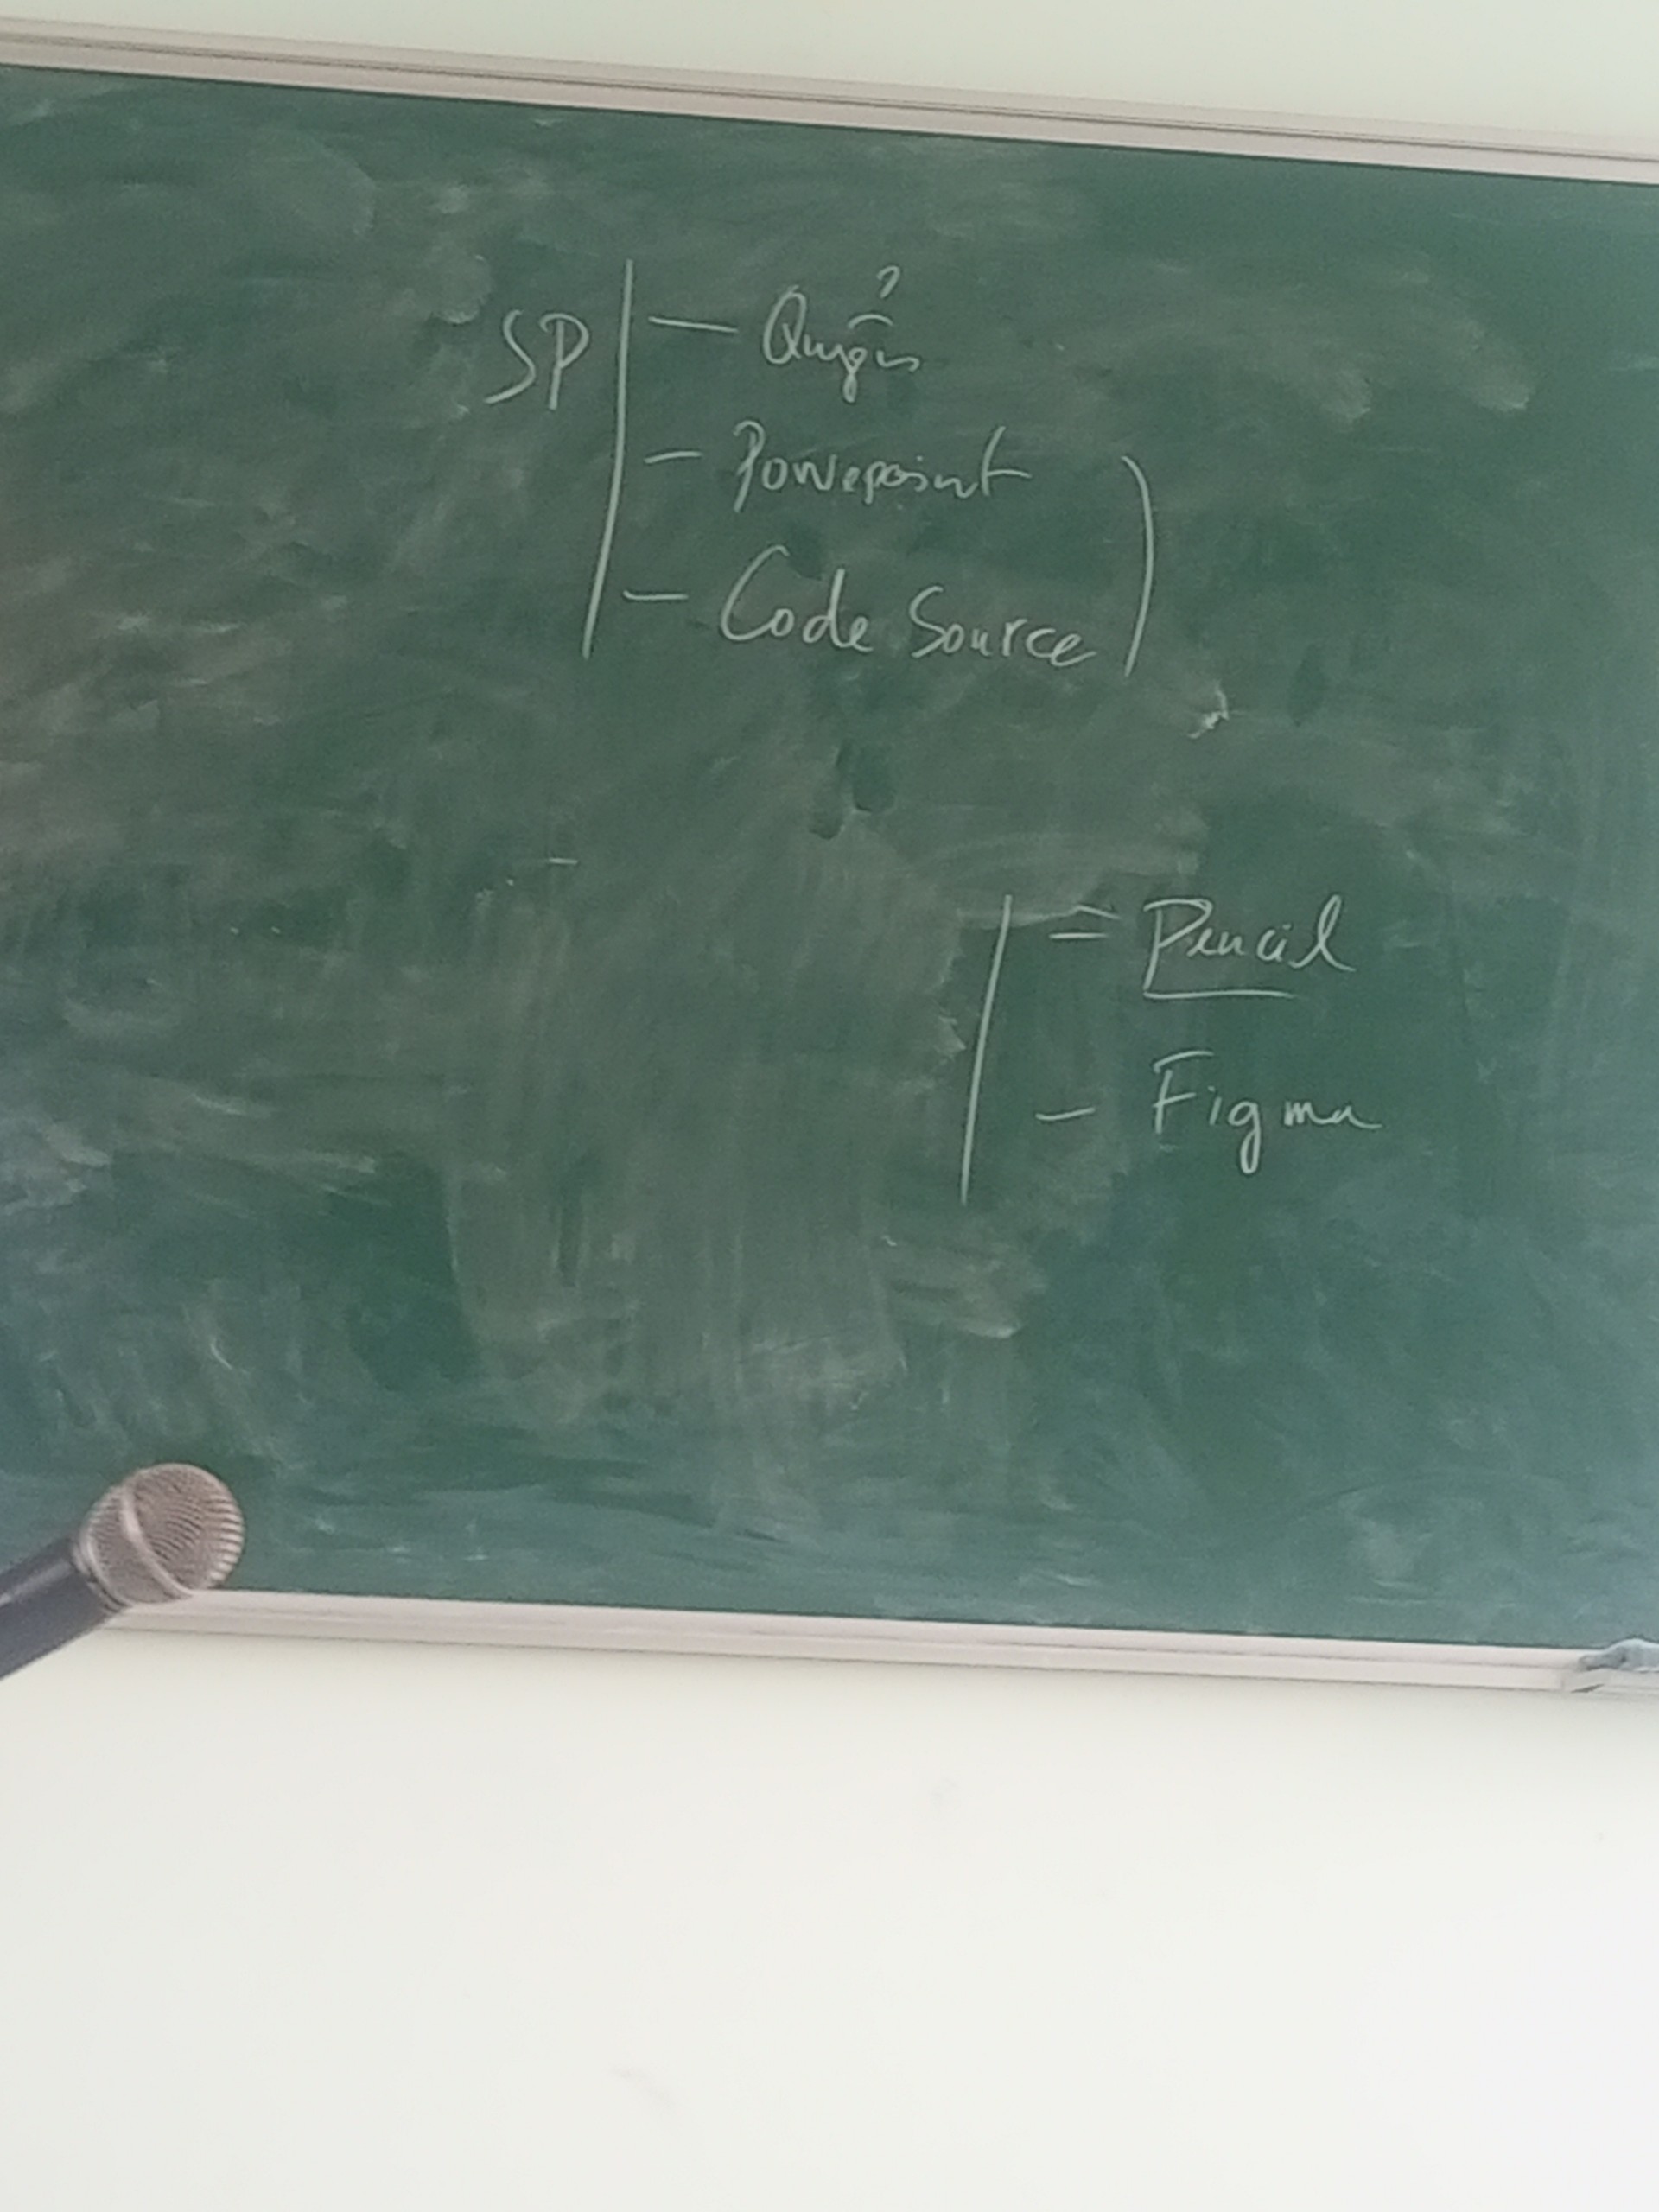 SP - Quyển
- Powepoint
- Code Source
- Pencil
- Figma